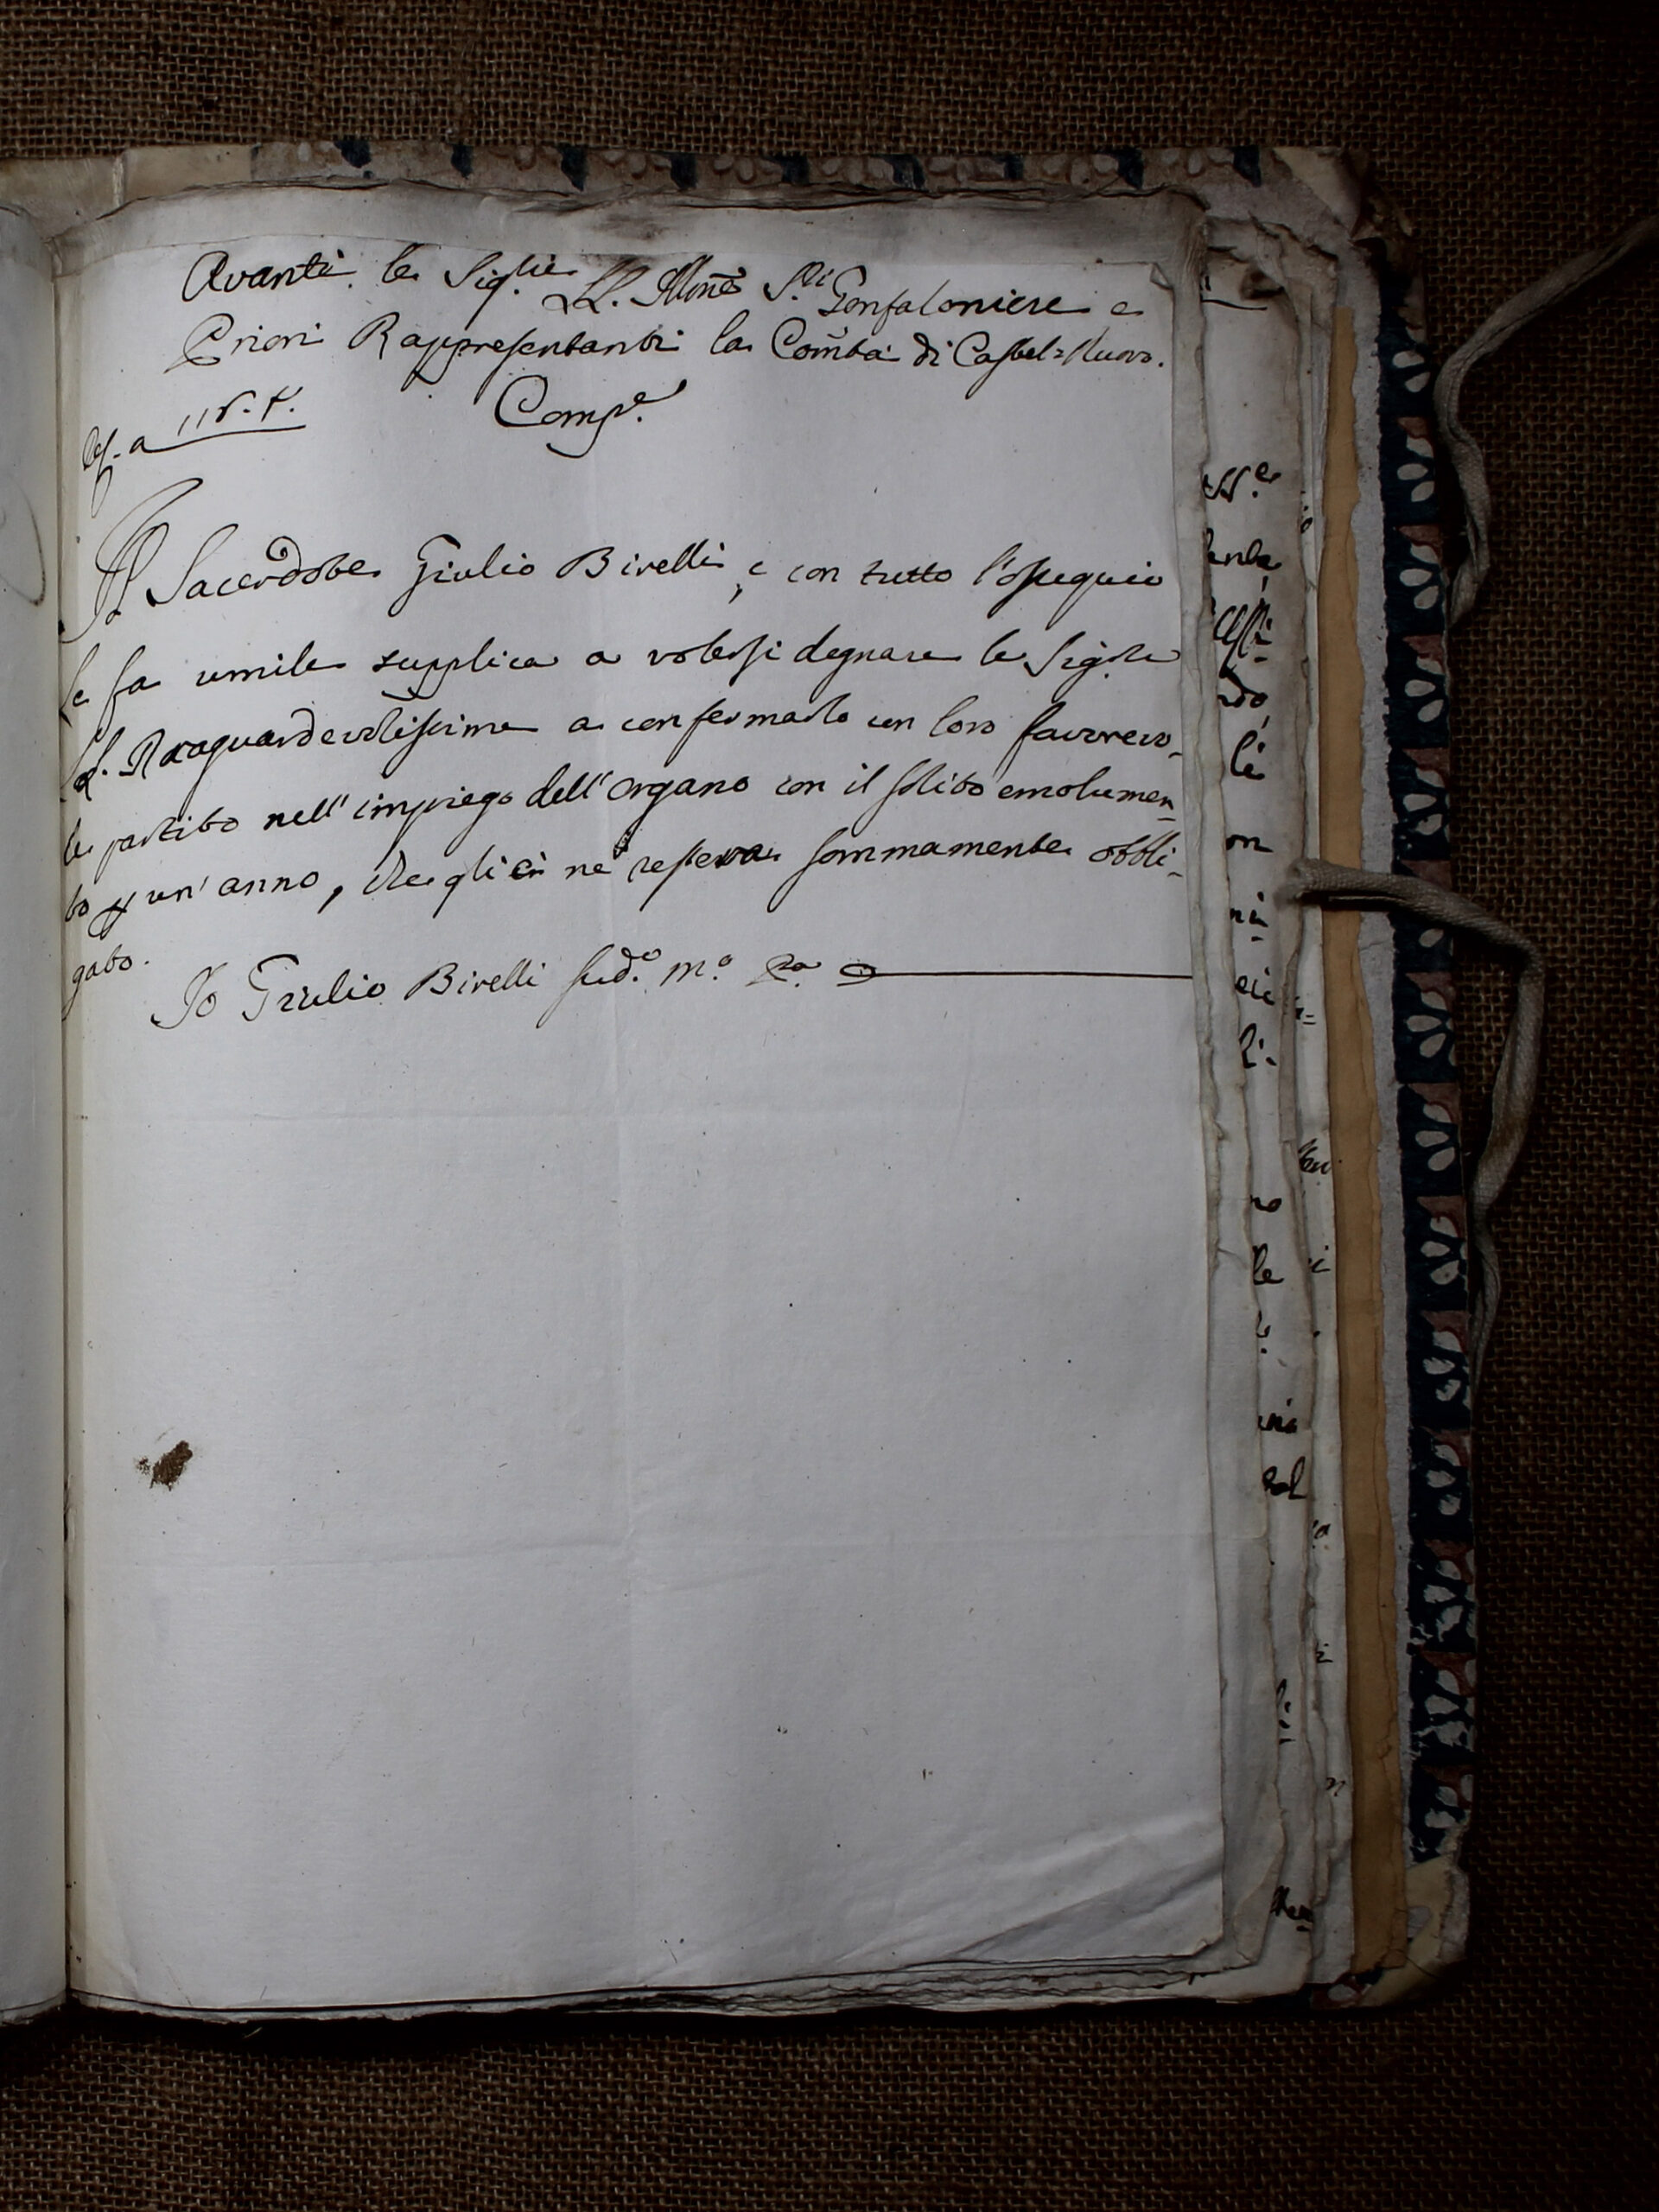 Avanti le Sig.rie LL. Illme S.ri Gonfaloniere e
Priori Rappresentanti la Comtà di Castel=Nuovo.
Comp.e
a 118. t.
Il Sacerdote Giulio Birelli, e con tutto l'ossequio
le fa umile supplica a volersi degnare le Sig.rie
LL. Raguardevolissime a confermarlo con loro favorevo-
le partito nell'impiego dell'organo con il solito emolumen-
to p un'anno, che gli ne resterà sommamente obbli-
gato.
Io Giulio Birelli sud.o m.o p.a